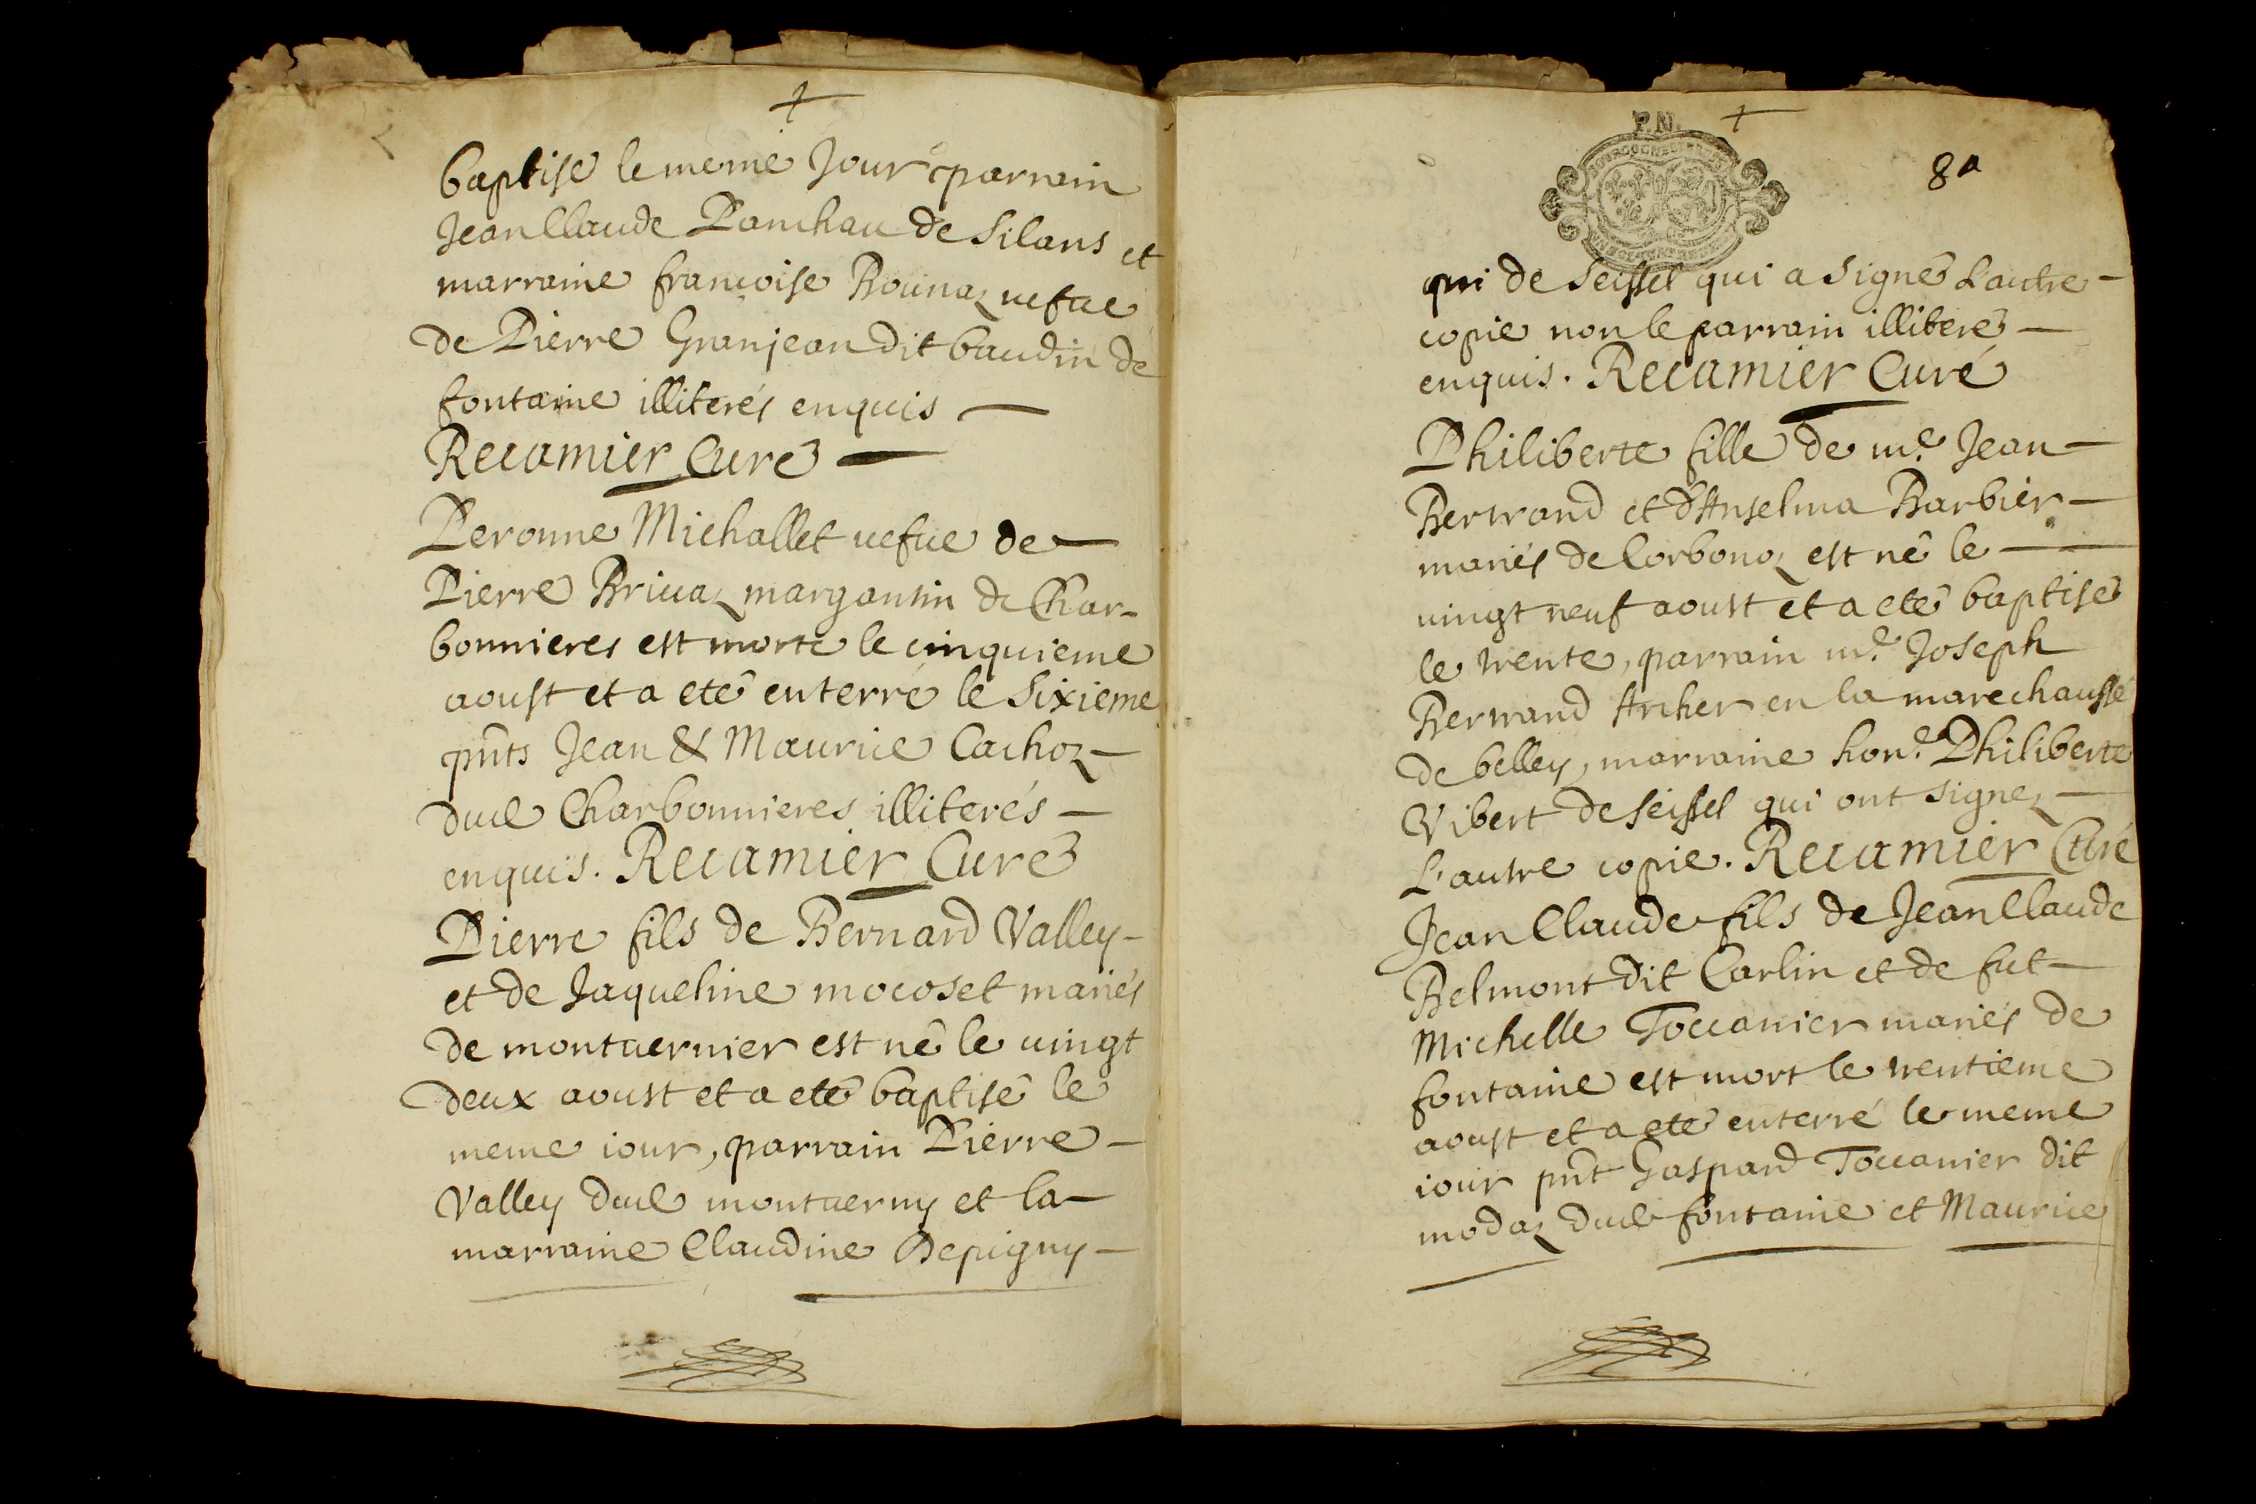 baptisé le meme Jour parrain
Jean Claude Panchau de Silans et
marraine francoise Bounaz uefue
de Pierre Granjean dit baudin de
fontaine illiterés enquis —
Recamier Curé —
Peronne Michallet uefue de —
Pierre Briuaz margantin de Char-
bonnieres est morte le cinquieme
aoust et a eté enterré le Sixieme
pñts Jean & Maurice Cachoz —
dud Charbonnieres illiterés —
enquis. Recamier Curé
Pierre fils de Bernard Valley —
et de Jaqueline mocoset mariés
de montuernier est né le uingt
deux aoust et a eté baptisé le
meme iour, parrain Pierre —
Valley dud montuerny et la —
marraine Claudine Depigny —
P.N.
8a
qui de Seissel qui a Signé L'autre —
copie non le parrain illiteré —
enquis. Recamier Curé
Philiberte fille de me. Jean —
Bertrand et d'Anselma Barbier —
mariés de Corbonoz est né le —
uingt neuf aoust et a eté baptisé
le trente, parrain me. Joseph
Bertrand Archer en la marechaussé
de belley, marraine hone. Philiberte
Vibert de Seissel qui ont signez —
L'autre copie. Recamier Curé
Jean Claude fils de Jean Claude
Belmont dit Carlin et de fut —
Michelle Toccanier mariés de
fontaine est mort le trentieme
aoust et a eté enterré le meme
iour pñt Gaspard Toccanier dit
modaz dud fontaine et Maurice